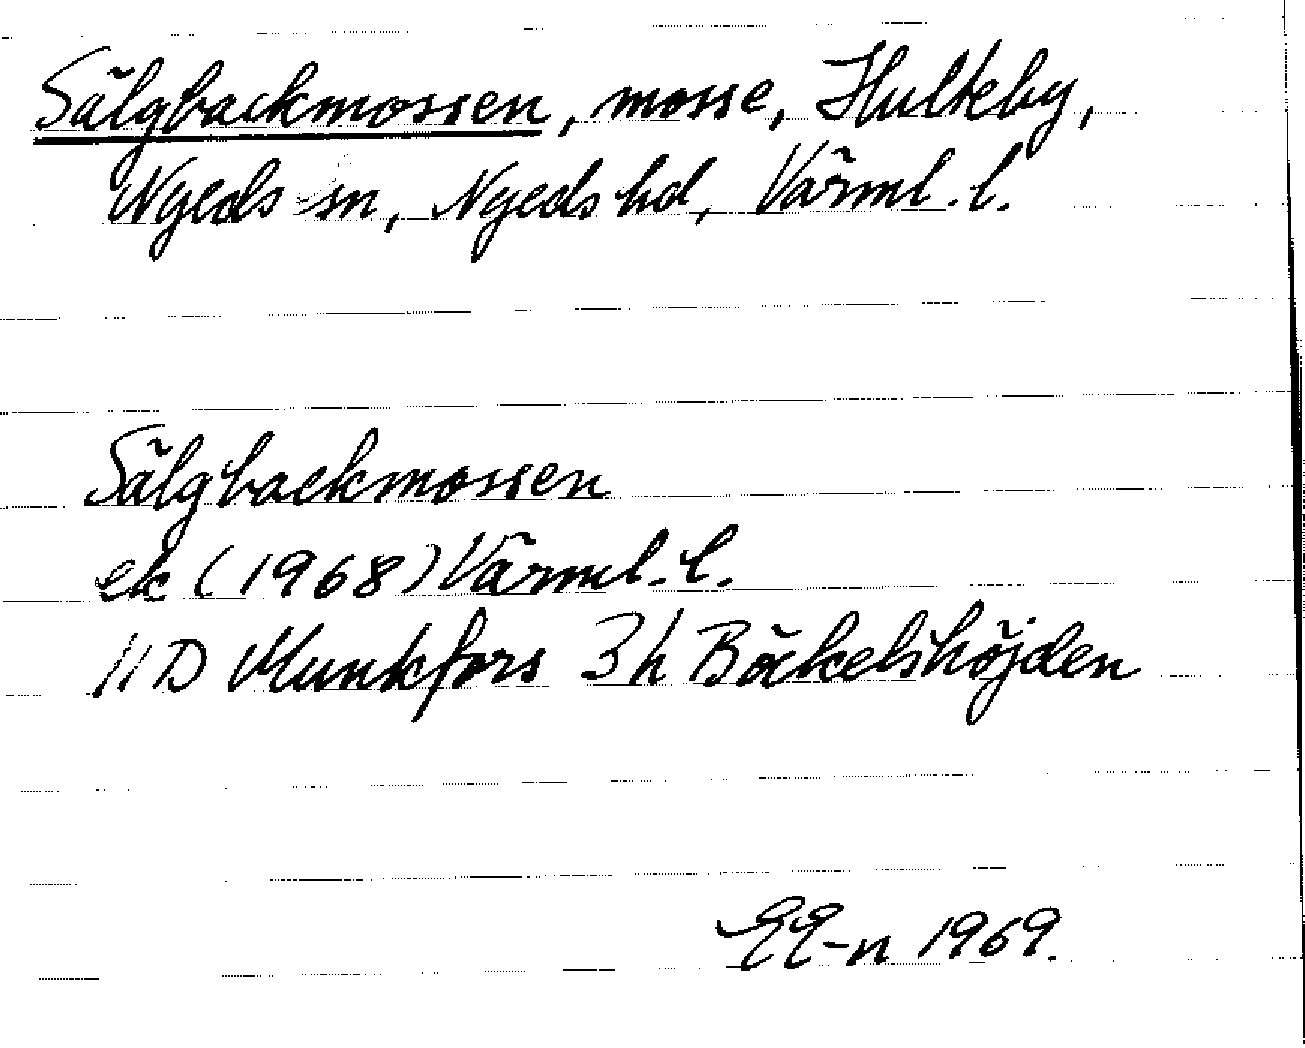 Sälgbackmossen, mosse, Hulteby,
Nyeds sn, Nyeds hd, Värml. l.
Sälgbackmossen
ek (1968) Värml. l.
11 D Munkfors 3h Bäckelshöjden
1969.